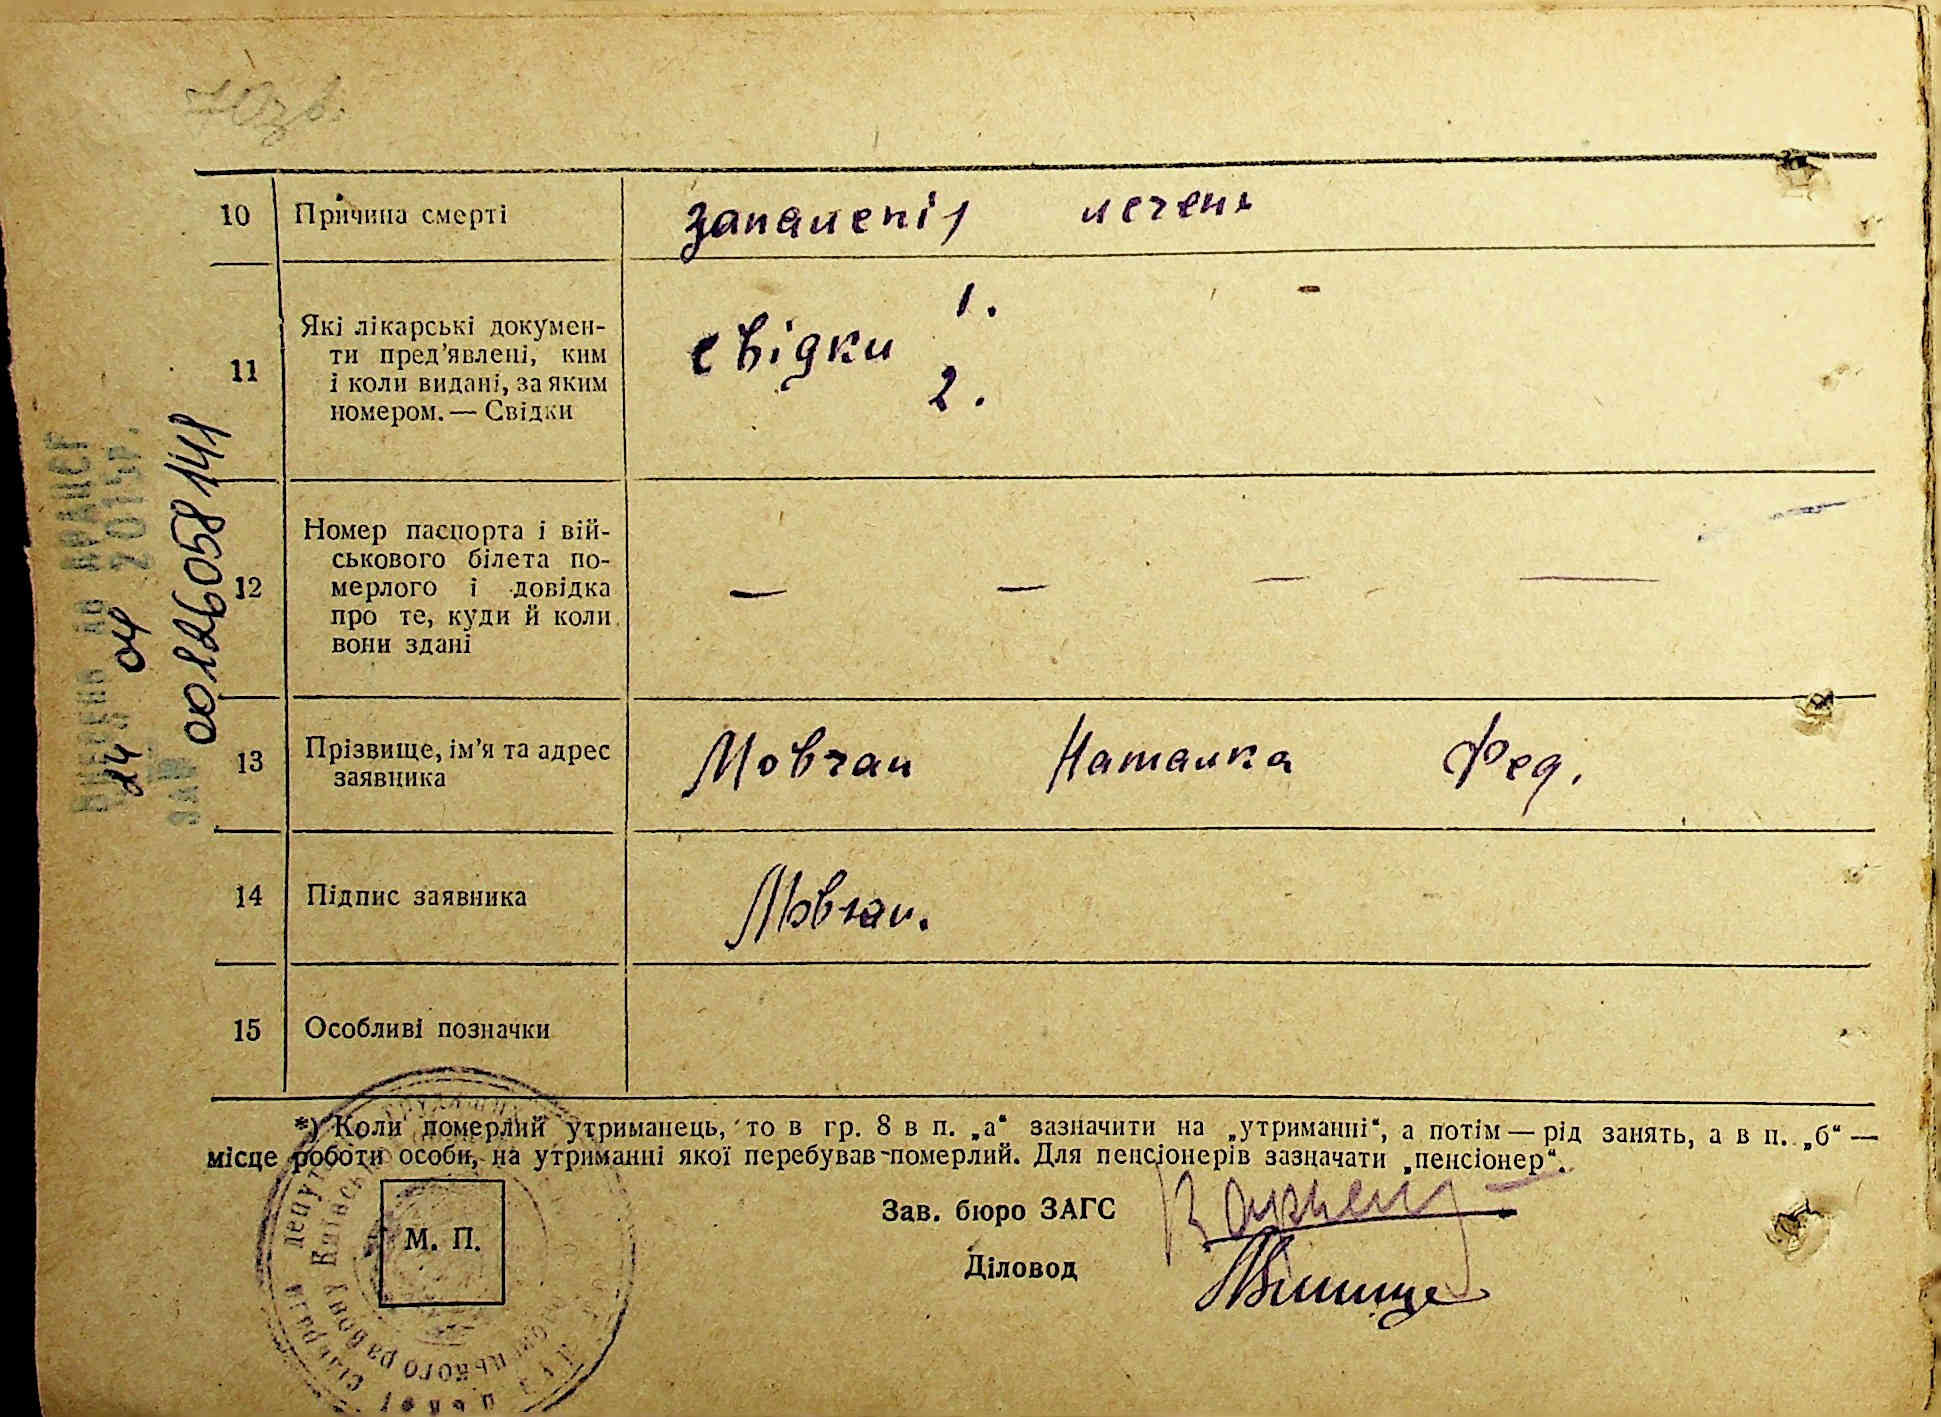 10 Причина смерті запаленія печень
11 Які лікарські докумен-
ти пред'явлені, ким
і коли видані, за яким
номером. — Свідки
свідки 1. —
2.
12 Номер паспорта і вій-
ськового білета по-
мерлого і довідка
про те, куди й коли
вони здані
— — — —
13 Прізвище, ім'я та адрес
заявника
Мовчан Наталка Фед.
14 Підпис заявника Мовчан.
15 Особливі позначки
*) Коли померлий утриманець, то в гр. 8 в п. „а“ зазначити на „утриманні“, а потім — рід занять, а в п. „б“ —
місце роботи особи, на утриманні якої перебував померлий. Для пенсіонерів зазначати „пенсіонер“.
Зав. бюро ЗАГС
Діловод
М. П.
ДРАЦСГ
24 04 2015р.
00126058141